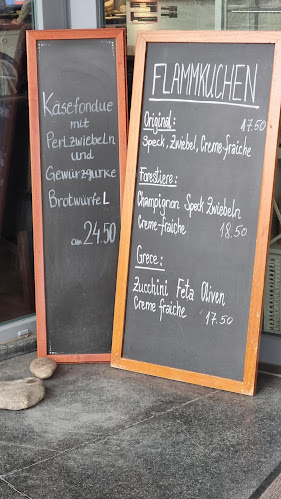 Käsefondue
mit
Perlzwiebeln
und
Gewürzgurke
Brotwürfel
CHF 24.50
FLAMMKUCHEN
Original: 17.50
Speck, Zwiebel, Creme-fraiche
Forestiere:
Champignon Speck Zwiebeln
Creme-fraiche 18.50
Grece:
Zucchini Feta Oliven
Creme fraiche 17.50